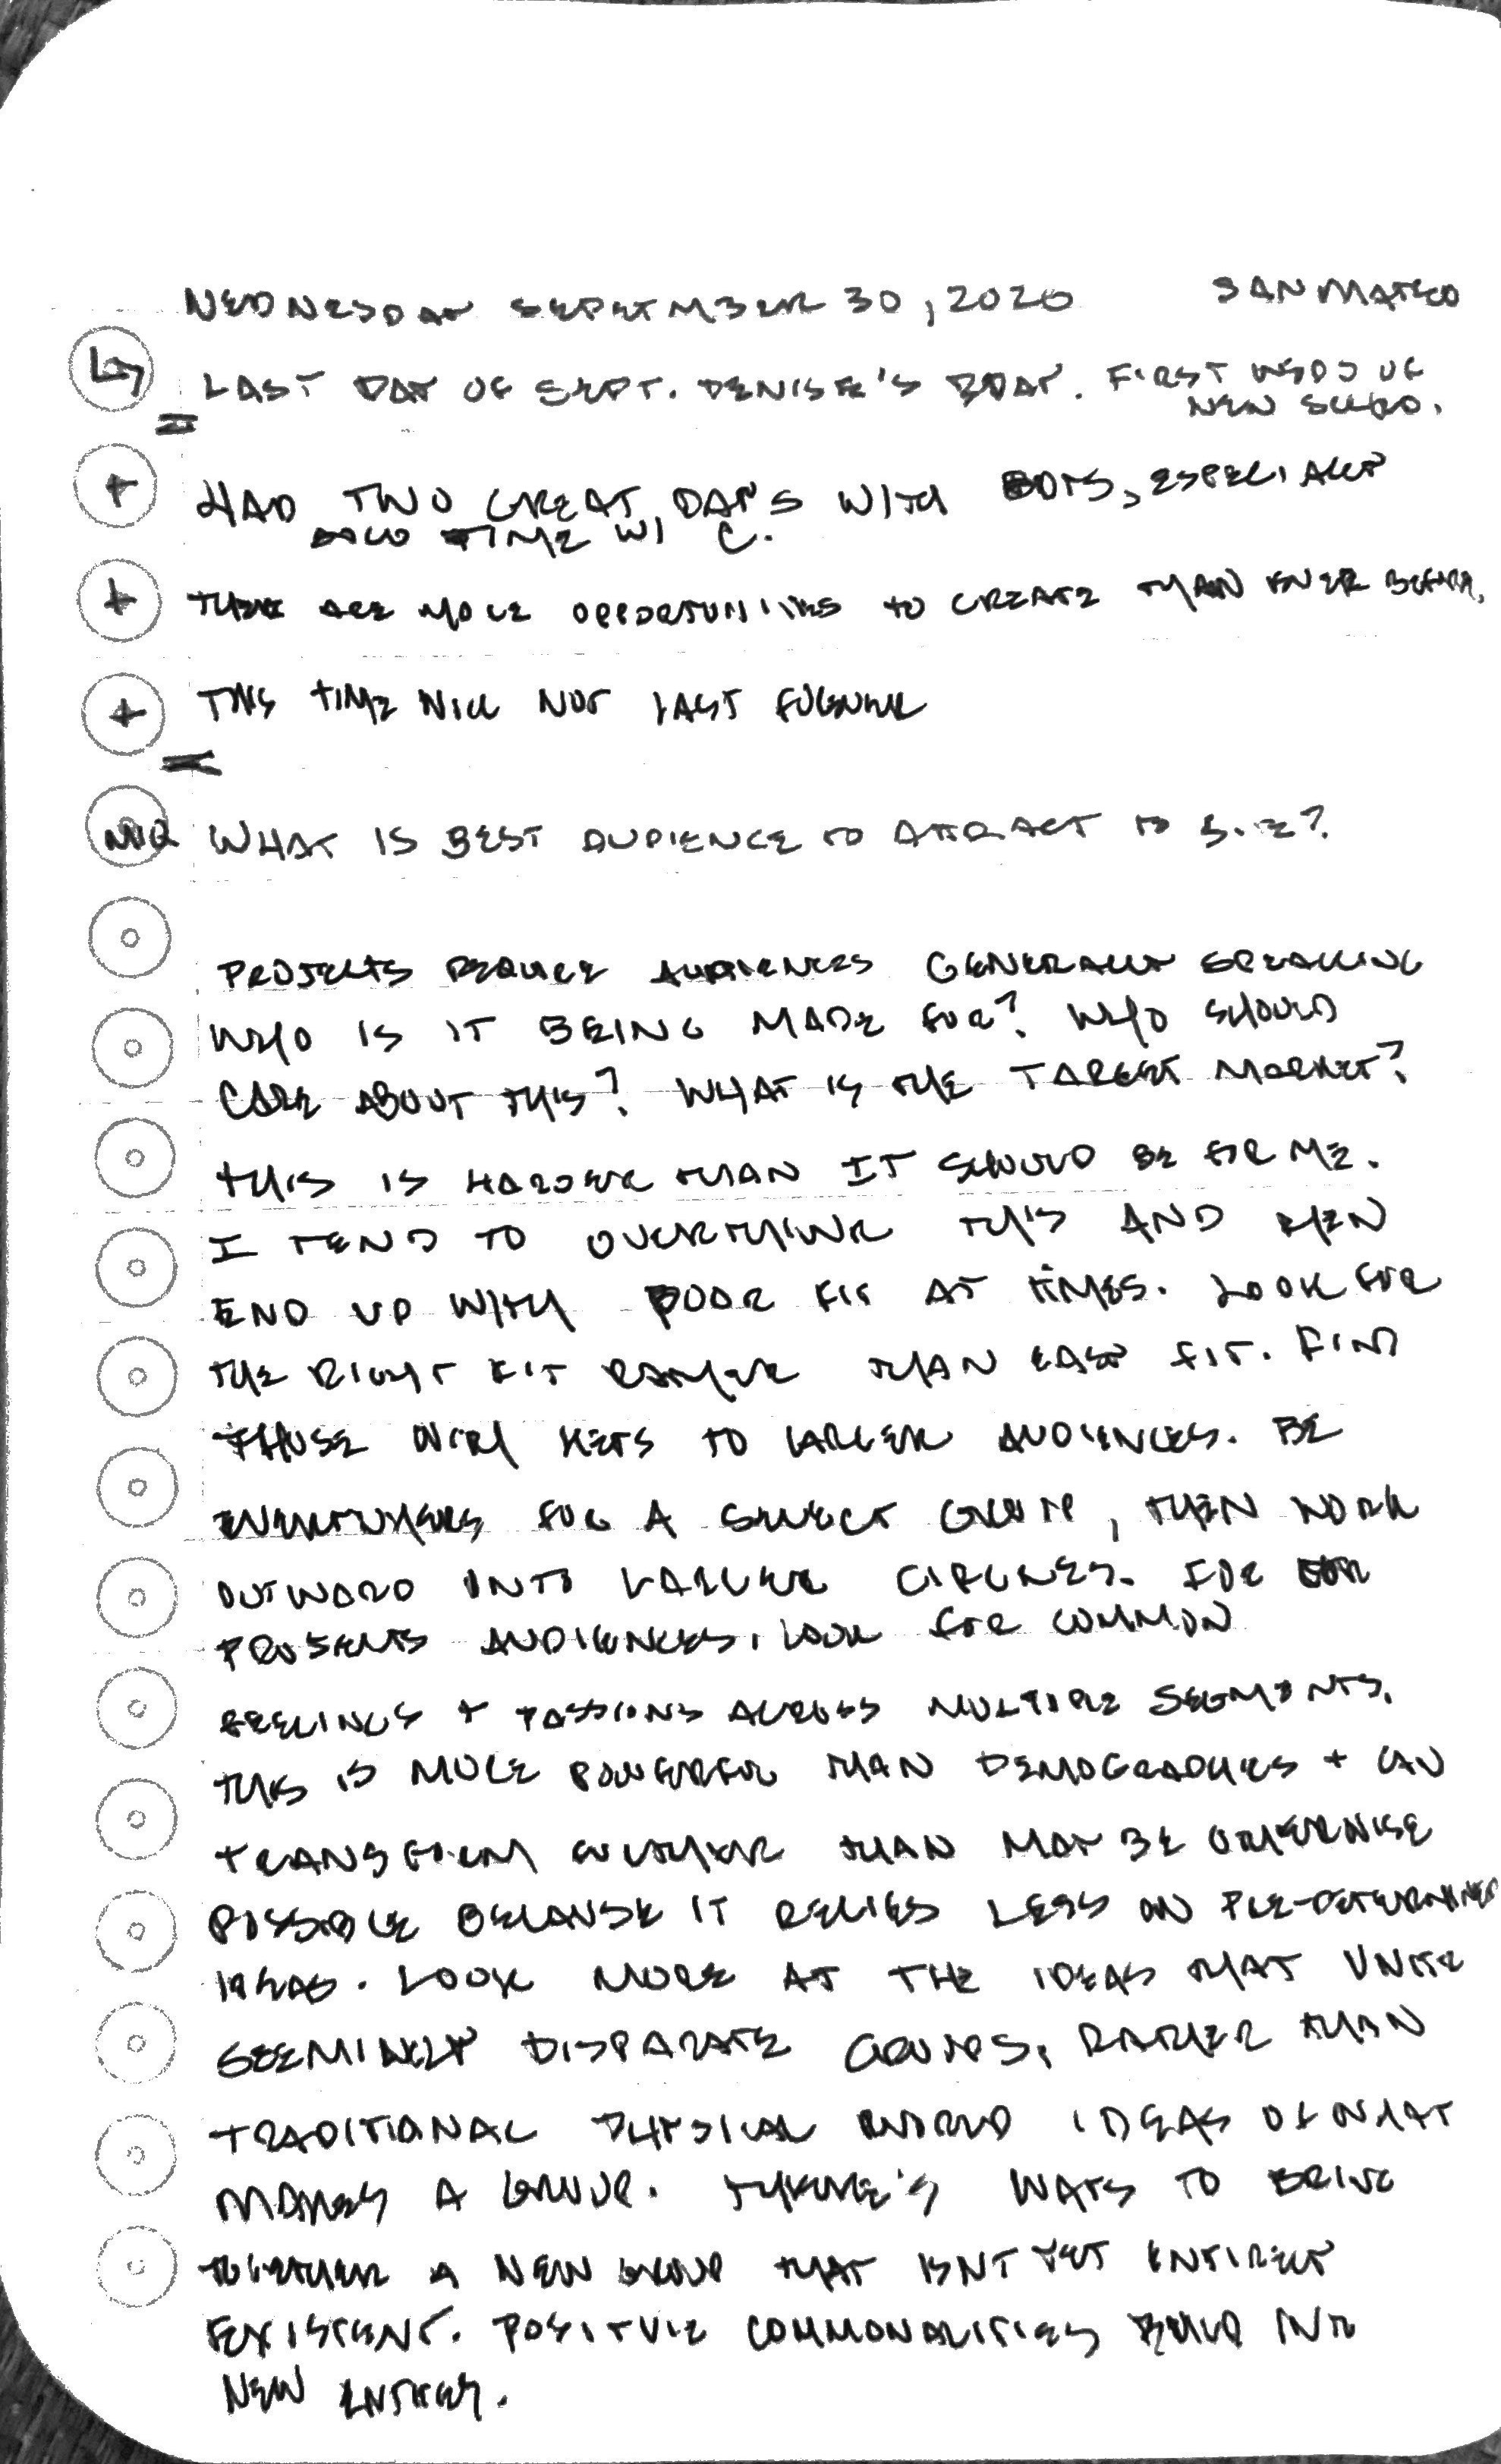 WEDNESDAY SEPETMBER 30, 2020 SAN MATEO
LAST DAY OF SEPT. DENISE'S BDAY. FIRST WEDS OF
NEW SCHED.
+ HAD TWO GREAT DAYS WITH BOYS, ESPECIALLY
SOLO TIME W/ C.
+ THERE ARE MORE OPPORTUNITIES TO CREATE THAN EVER BEFORE.
+ THIS TIME WILL NOT LAST FOREVER
WHAT IS BEST AUDIENCE TO ATTRACT TO
PROJECTS REQUIRE AUDIENCES GENERALLY SPEAKING
WHO IS IT BEING MADE FOR? WHO SHOULD
CARE ABOUT THIS? WHAT IS THE TARGET MARKET?
THIS IS HARDER THAN IT SHOULD BE FOR ME.
I TEND TO OVERTHINK THIS AND THEN
END UP WITH POOR FIT AT TIMES. LOOK FOR
THE RIGHT FIT RATHER THAN EASY FIT. FIND
THOSE WITH KEYS TO LARGER AUDIENCES. BE
FOR A SELECT GROUP, THEN WORK
OUTWARD INTO LARGER CIRCLES. FOR
PROJECTS AUDIENCES, LOOK FOR COMMON
FEELINGS + PASSIONS ACROSS MULTIPLE SEGMENTS.
THIS IS MORE POWERFUL THAN DEMOGRAPHICS + CAN
TRANSFORM FURTHER THAN MAY BE OTHERWISE
POSSIBLE BECAUSE IT RELIES LESS ON PRE-DETERMINED
IDEAS. LOOK MORE AT THE IDEAS THAT UNITE
SEEMINGLY DISPARATE GROUPS, RATHER THAN
TRADITIONAL PHYSICAL WORLD IDEAS OF WHAT
MAKES A GROUP. THERE'S WAYS TO BRING
TOGETHER A NEW GROUP THAT ISNT YET ENTIRELY
EXISTENT. POSITVIE COMMONALITIES BUILD INTO
NEW ENTITIES.